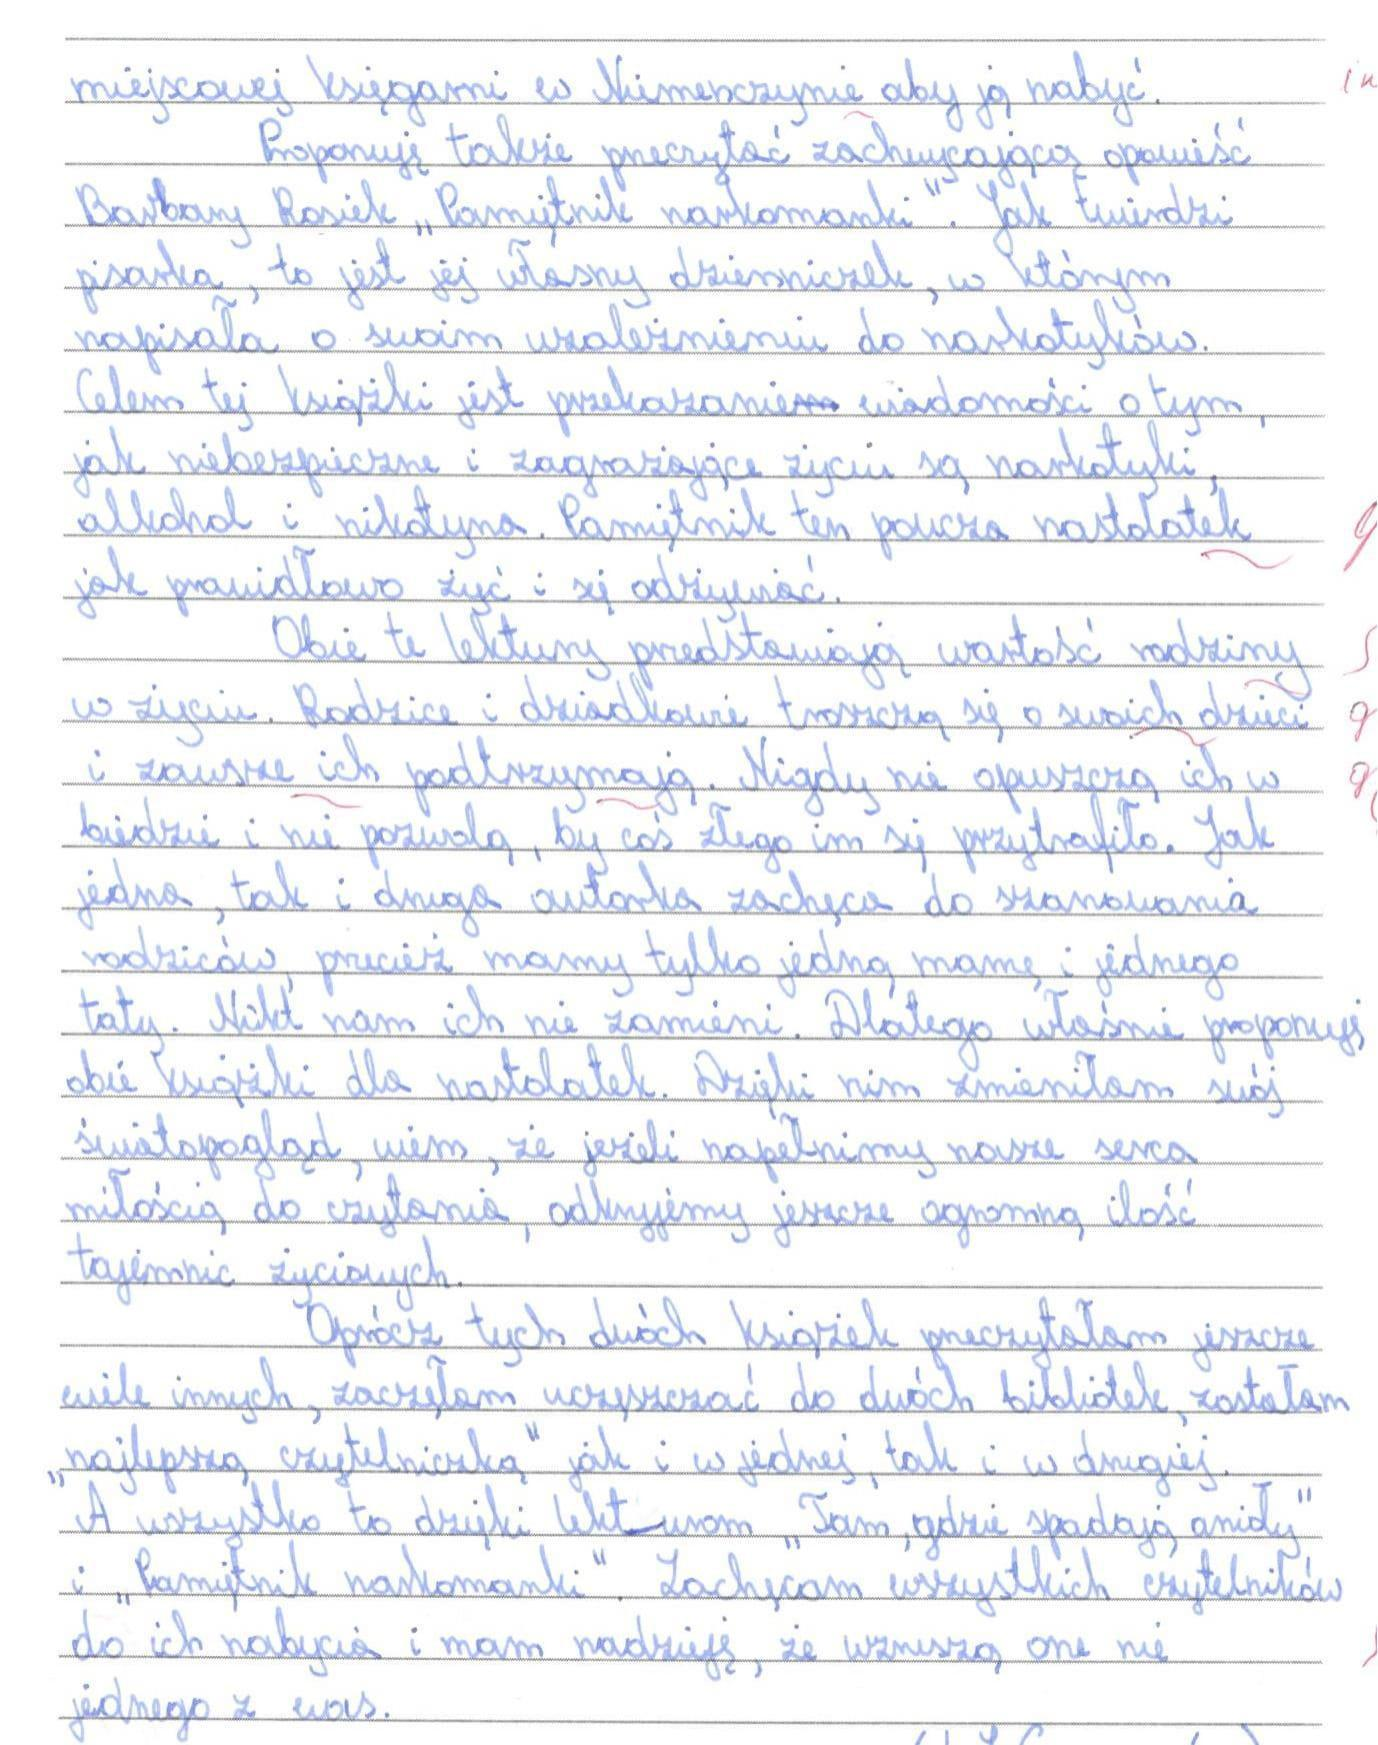 miejscowej księgarni w Niemenczynie aby ją nabyć.
Proponuję także przeczytać zachwycającą opowieść
Barbary Rosiek „Pamiętnik narkomanki". Jak twierdzi
pisarka, to jest jej własny dzienniczek, w którym
napisała o swoim uzależnieniu do narkotyków.
Celem tej książki jest przekazanie wiadomości o tym,
jak niebezpieczne i zagrażające życiu są narkotyki,
alkohol i nikotyna. Pamiętnik ten poucza nastolatek
jak prawidłowo żyć i się odżywiać.
Obie te lektury przedstawiają wartość rodziny
w życiu. Rodzice i dziadkowie troszczą się o swoich dzieci
i zawsze ich podtrzymają. Nigdy nie opuszczą ich w
biedzie i nie pozwolą, by coś złego im się przytrafiło. Jak
jedna, tak i druga autorka zachęca do szanowania
rodziców, przecież mamy tylko jedną mamę i jednego
taty. Nikt nam ich nie zamieni. Dlatego właśnie proponuję
obie książki dla nastolatek. Dzięki nim zmieniłam swój
światopogląd, wiem, że jeżeli napełnimy nasze serca
miłością do czytania, odkryjemy jeszcze ogromną ilość
tajemnic życiowych.
Oprócz tych dwóch książek przeczytałam jeszcze
wiele innych, zaczęłam uczęszczać do dwóch bibliotek, zostałam
„najlepszą czytelniczką" jak i w jednej, tak i w drugiej.
A wszystko to dzięki lekturom „Tam, gdzie spadają anioły"
i „Pamiętnik narkomanki". Zachęcam wszystkich czytelników
do ich nabycia i mam nadzieję, że wzruszą one nie
jednego z was.